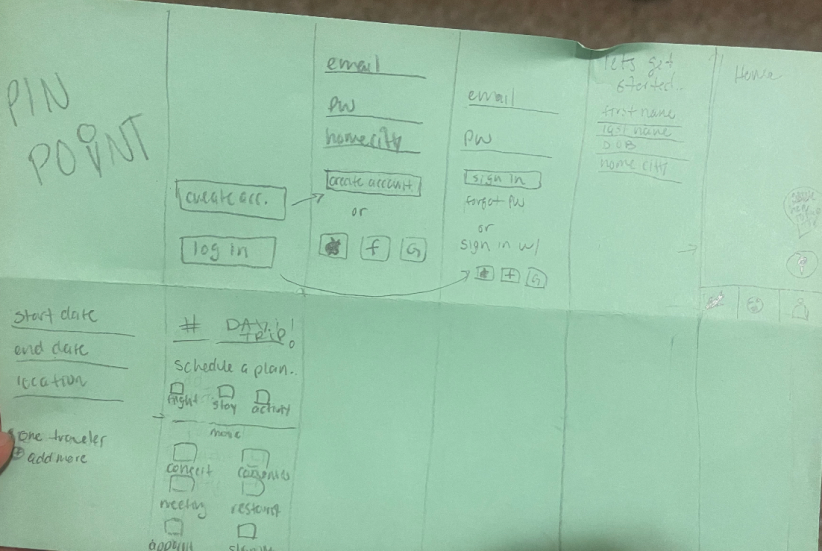 PIN
POINT
create acc.
log in
email
pw
home city
create account
or
f
G
email
pw
sign in
forgot pw
or
sign in w/
f
G
lets get
started..
first name
last name
DOB
home city
Home
start date
end date
location
one traveler
add more
# DAY
TRIP!
schedule a plan..
flight
stay
activity
more
concert
meeting